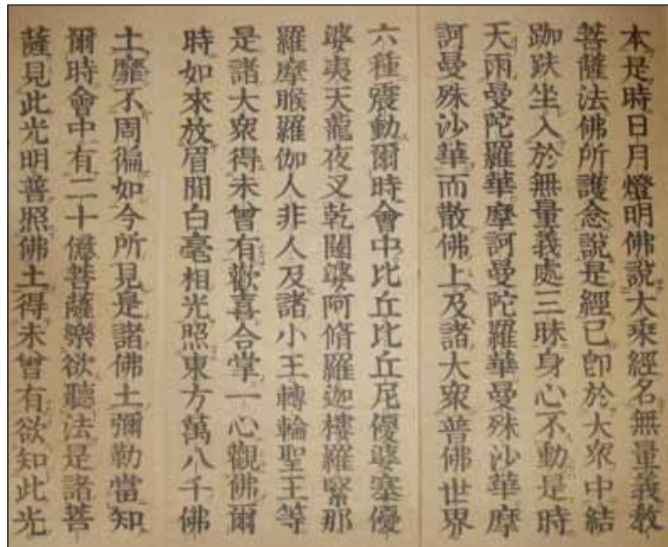 本是時日月燈明佛說大乘經名無量義教
菩薩法佛所護念說是經已卽於大衆中結
跏趺坐入於無量義處三昧身心不動是時
天雨曼陀羅華摩訶曼陀羅華曼殊沙華摩
訶曼殊沙華而散佛上及諸大衆普佛世界
六種震動爾時會中比丘比丘尼優婆塞優
婆夷天龍夜叉乾闥婆阿脩羅迦樓羅緊那
羅摩睺羅伽人非人及諸小王轉輪聖王等
是諸大衆得未曾有歡喜合掌一心觀佛爾
時如來放眉間白毫相光照東方萬八千佛
土靡不周徧如今所見是諸佛土彌勒當知
爾時會中有二十億菩薩樂欲聽法是諸菩
薩見此光明普照佛土得未曾有欲知此光